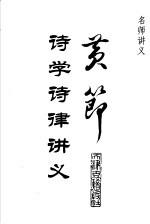 名师讲义
黄節
诗学诗律讲义